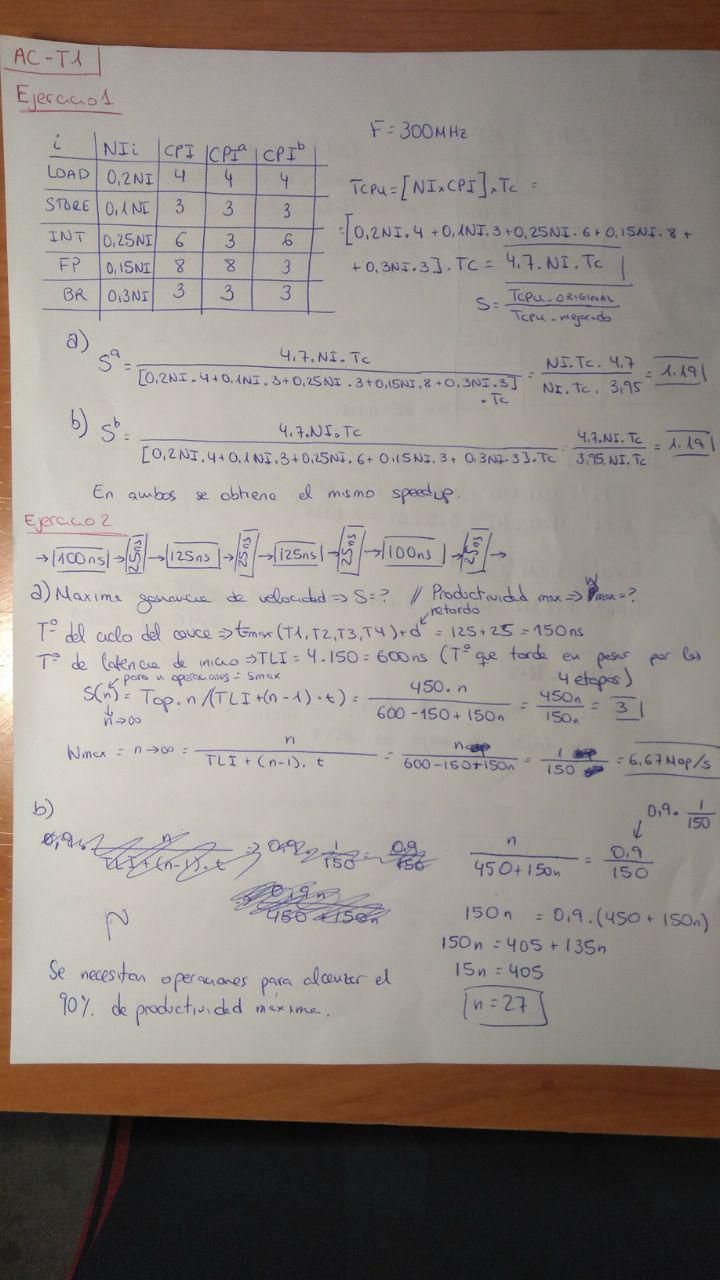 AC-T1
Ejercicio 1
F = 300MHz
i NIi CPI CPIᵃ CPIᵇ
LOAD 0,2NI 4 4 4
STORE 0,1NI 3 3 3
INT 0,25NI 6 3 6
FP 0,15NI 8 8 3
BR 0,3NI 3 3 3
TCPU = [NI x CPI] x Tc =
= [0,2NI.4 + 0,1NI.3 + 0,25NI.6 + 0,15NI.8 +
+ 0,3NI.3]. TC = 4,7.NI.Tc
S = TCPU-ORIGINAL / TCPU-mejorado
a) Sᵃ = 4,7.NI.Tc / [0,2NI.4+0,1NI.3+0,25NI.3+0,15NI.8+0,3NI.3].Tc = NI.Tc.4,7 / NI.Tc.3,95 = 1.19
b) Sᵇ = 4,7.NI.Tc / [0,2NI.4+0,1NI.3+0,25NI.6+0,15NI.3+0,3NI.3].Tc = 4,7.NI.Tc / 3,95.NI.Tc = 1.19
En ambos se obtiene el mismo speedup.
Ejercicio 2
→ 100ns → 25ns → 125ns → 25ns → 125ns → 25ns → 100ns → 25ns →
a) Maxima ganancia de velocidad ⇒ S=? // Productividad max ⇒ Wmax=?
retardo
Tº del ciclo del cauce ⇒ t=max(T1,T2,T3,T4)+d = 125+25 = 150ns
Tº de latencia de inicio ⇒ TLI = 4.150 = 600ns (Tº que tarda en pasar por las
4 etapas)
para n operaciones = Smax
S(n) = Top.n/(TLI+(n-1).t) = 450.n / 600-150+150n = 450n / 150n = 3
n→∞
Wmax = n→∞ = n / TLI+(n-1).t = n / 600-150+150n = 1 / 150 = 6,67Mop/s
b)
0,9. 1/150
n / 450+150n = 0,9 / 150
150n = 0,9.(450+150n)
150n = 405 + 135n
15n = 405
n = 27
Se necesitan operaciones para alcanzar el
90% de productividad máxima.